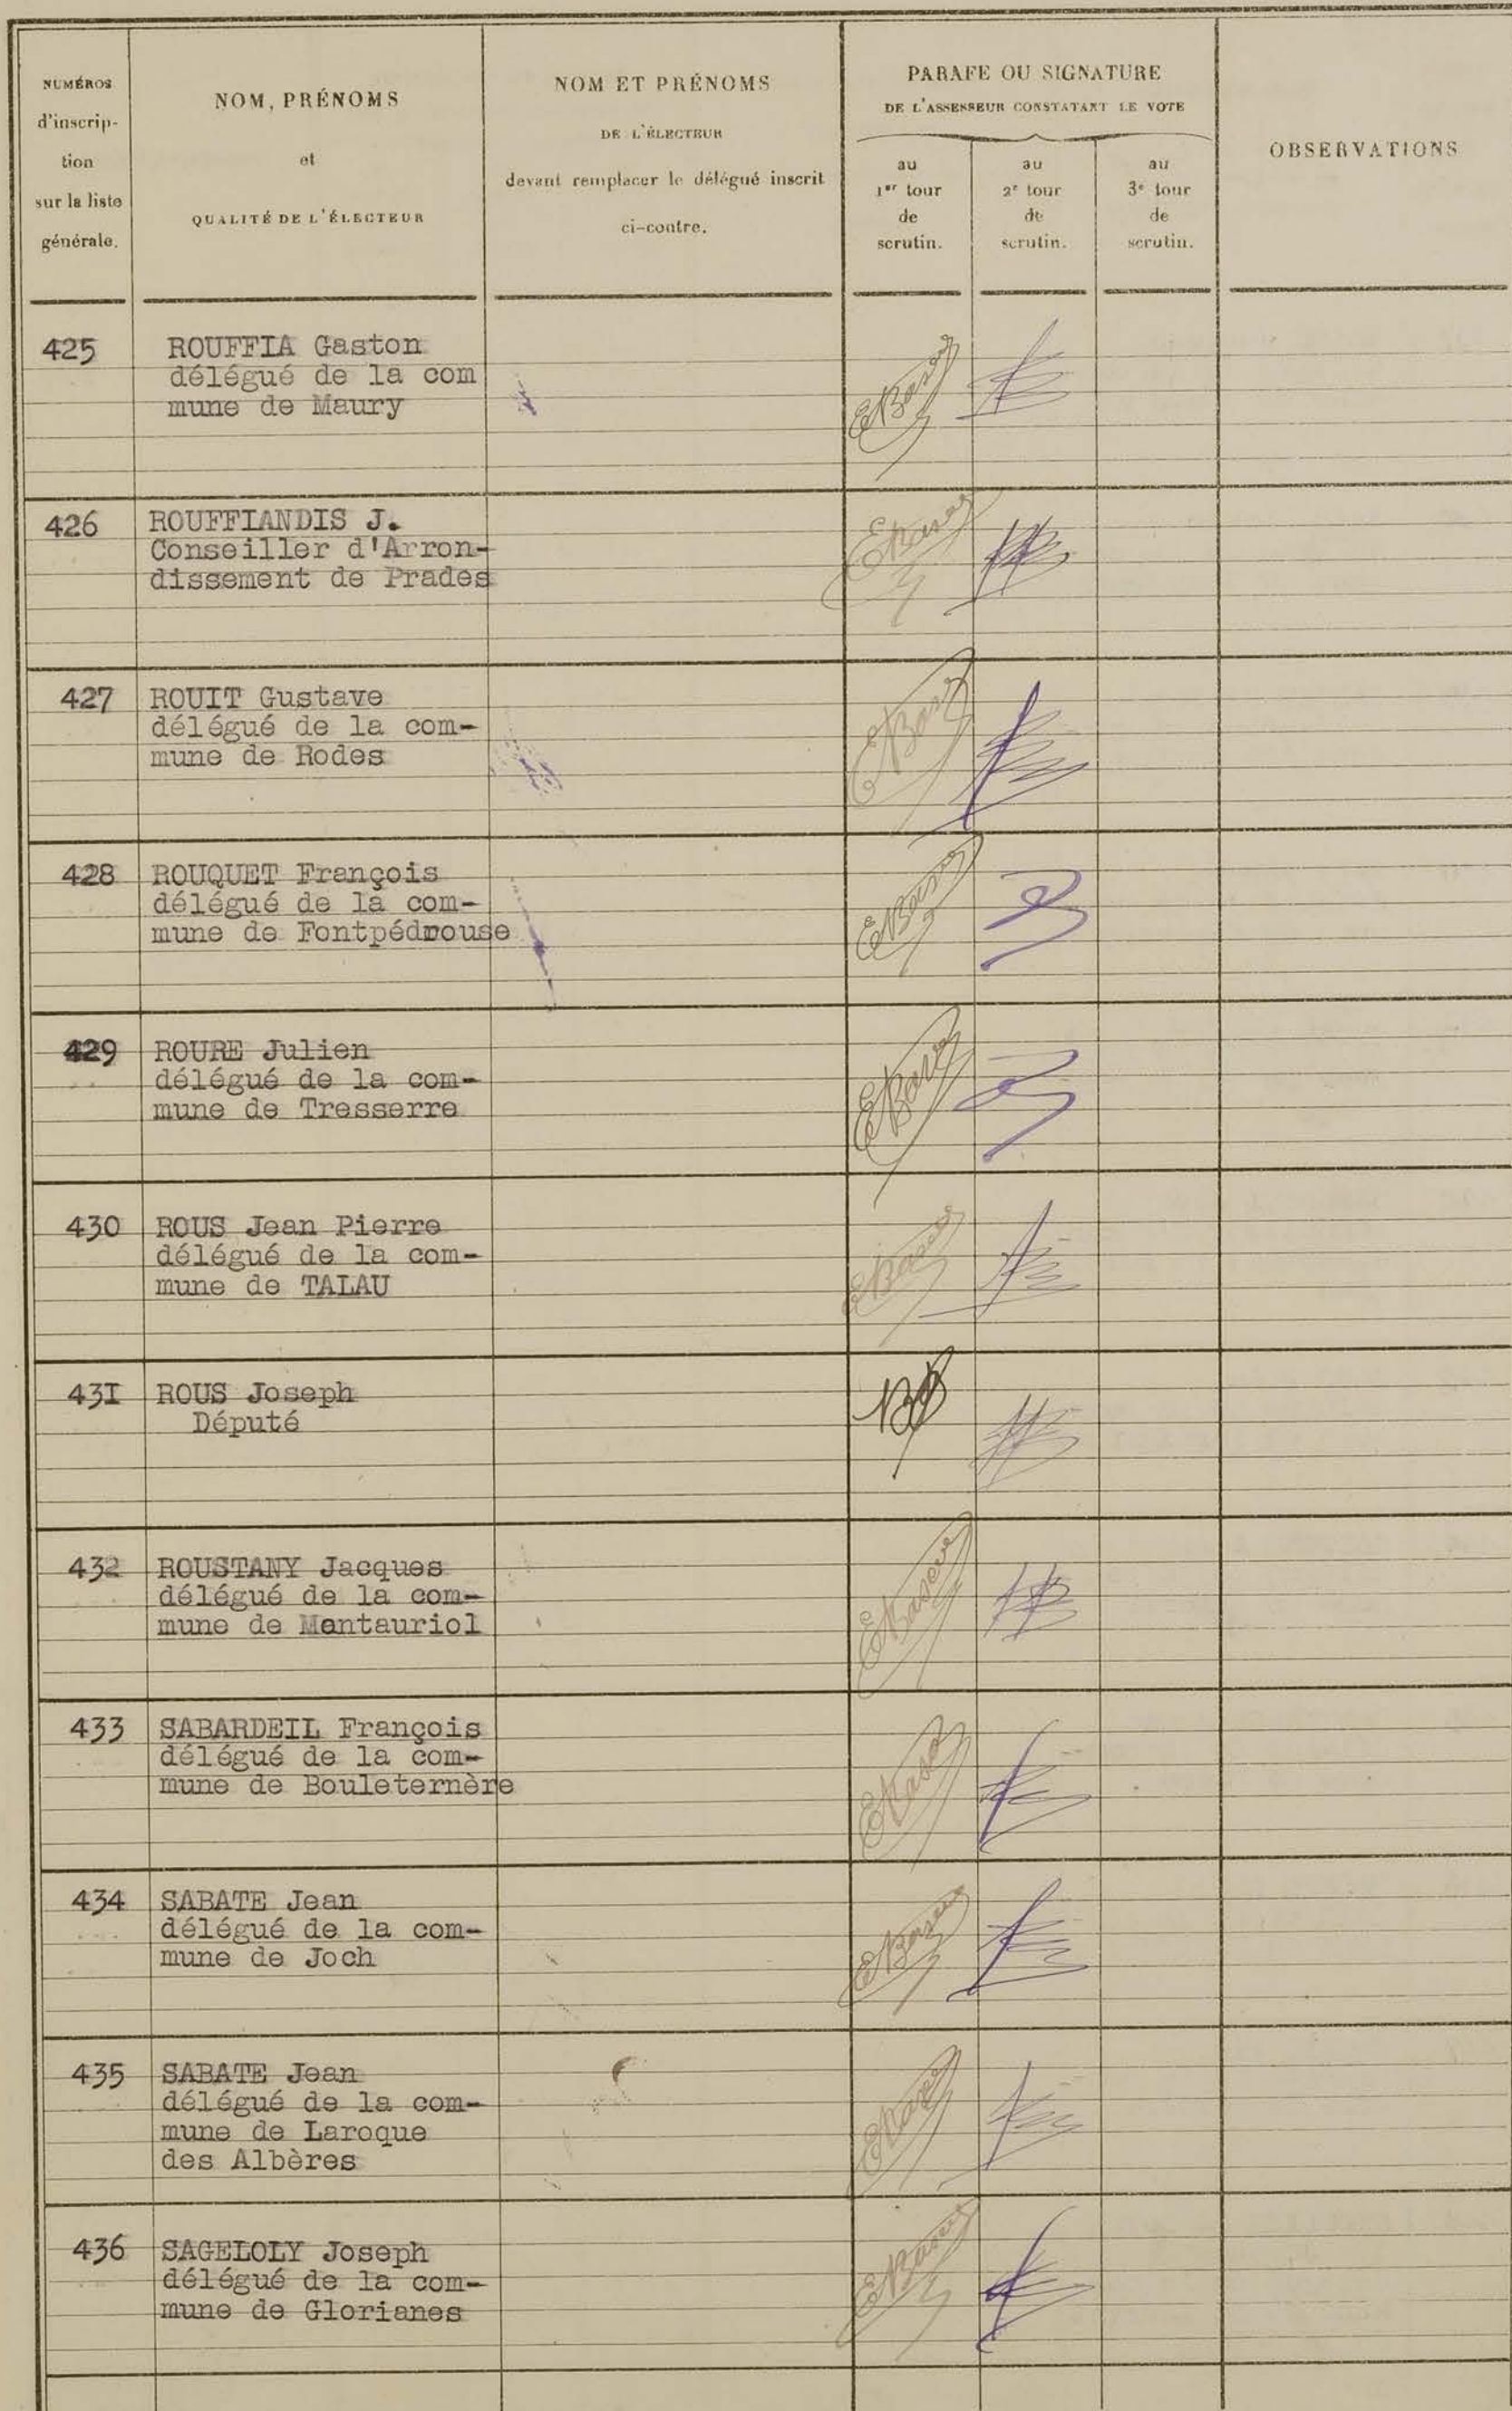 NUMÉROS
d'inscrip-
tion
sur la liste
générale.
NOM, PRÉNOMS
et
QUALITÉ DE L'ÉLECTEUR
NOM ET PRÉNOMS
DE L'ÉLECTEUR
devant remplacer le délégué inscrit
ci-contre.
PARAFE OU SIGNATURE
DE L'ASSESSEUR CONSTATANT LE VOTE
au
1er tour
de
scrutin.
au
2e tour
de
scrutin.
au
3e tour
de
scrutin.
OBSERVATIONS
425 ROUFFIA Gaston
délégué de la com
mune de Maury
426 ROUFFIANDIS J.
Conseiller d'Arron-
dissement de Prades
427 ROUIT Gustave
délégué de la com-
mune de Rodes
428 ROUQUET François
délégué de la com-
mune de Fontpédrouse
429 ROURE Julien
délégué de la com-
mune de Tresserre
430 ROUS Jean Pierre
délégué de la com-
mune de TALAU
43I ROUS Joseph
Député
432 ROUSTANY Jacques
délégué de la com-
mune de Montauriol
433 SABARDEIL François
délégué de la com-
mune de Bouleternère
434 SABATE Jean
délégué de la com-
mune de Joch
435 SABATE Jean
délégué de la com-
mune de Laroque
des Albères
436 SAGELOLY Joseph
délégué de la com-
mune de Glorianes